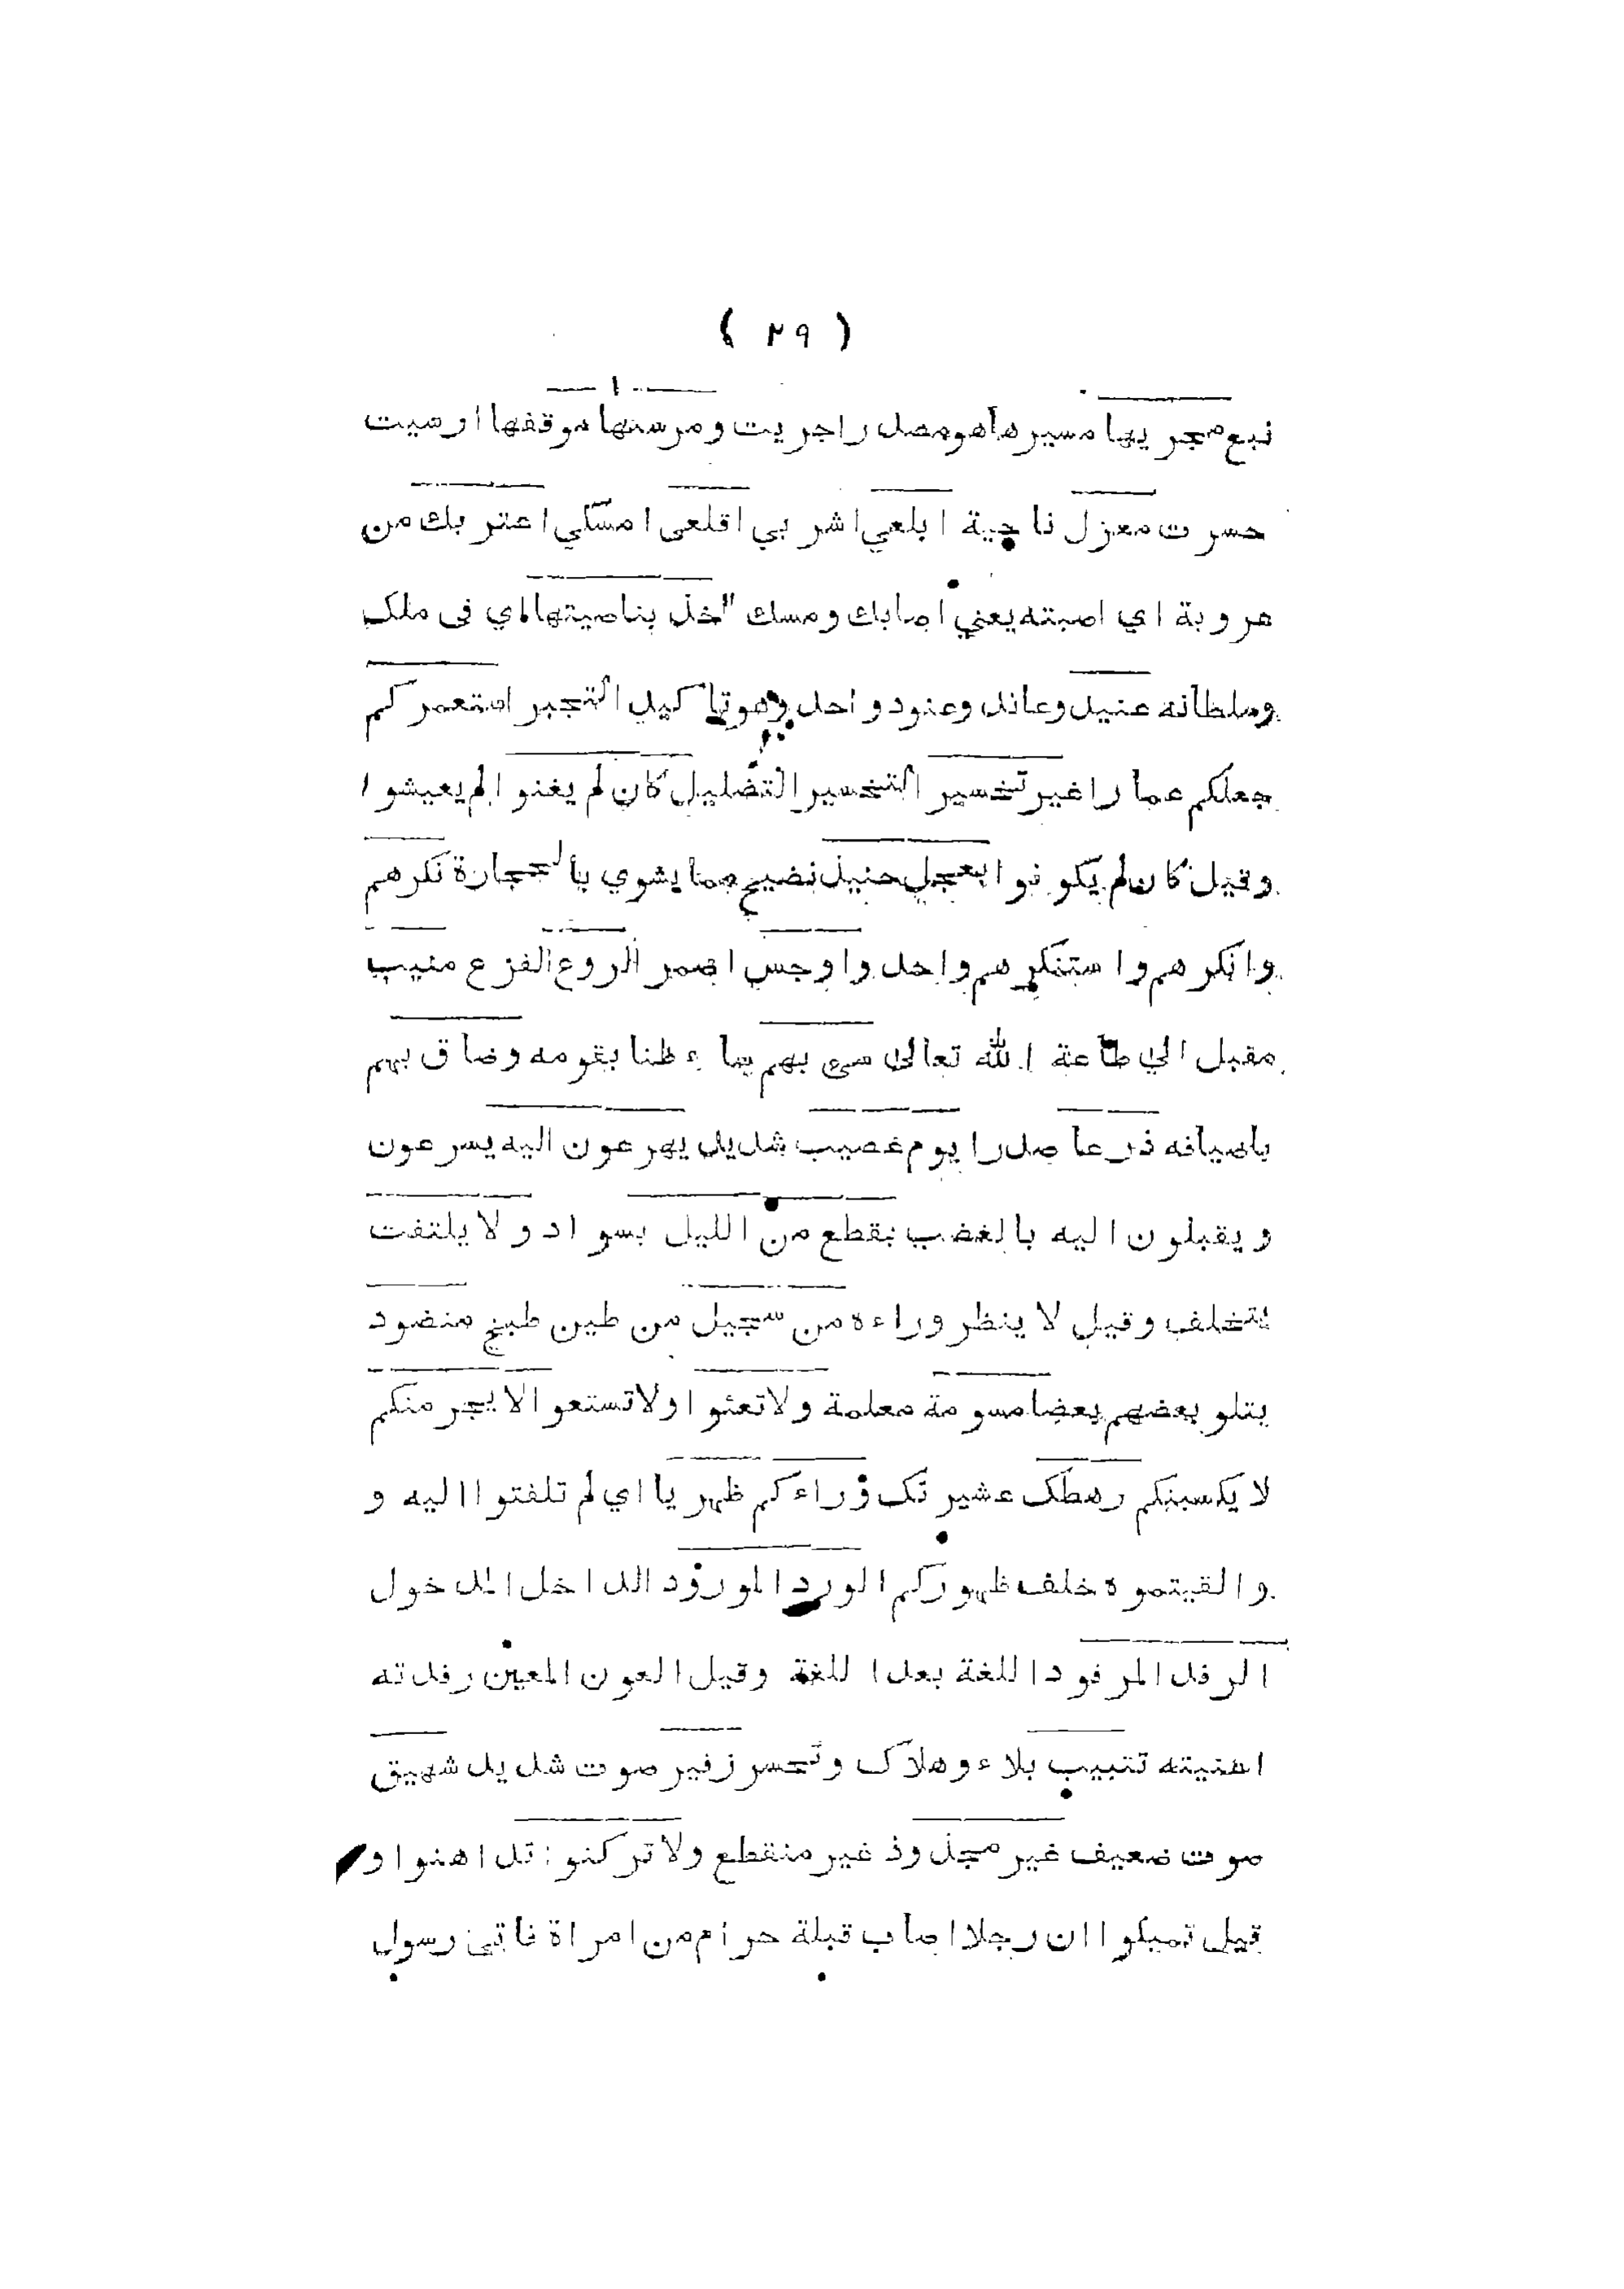 ( ٢٩ )
نبع مجريها مسيرها هو مصدر اجريت ومرسىها موقفها ارسيت
حسرت معزل ناحية ابلعي اشربي اقلعى امسكي اعتربك من
عروبة اي اصبته يعني اصابك ومسك اخذ بناصيتها اي فى ملكه
وسلطانه عنيد وعاند وعنود واحد وهو تاكيد التجبر استعمركم
جعلكم عمارا غير تخسير التخسير التضليل كان لم يغنوا لم يعيشوا
وقيل كان لم يكونوا بعجل حنيذ نضيج مما يشوي بالحجارة نكرهم
وانكرهم واستنكرهم واحد واوجس اضمر الروع الفزع منيب
مقبل الي طاعة الله تعالى سىء بهم ساء ظنا بقومه وضاق بهم
باضيافه ذرعا صدرا يوم عصيب شديد يهرعون اليه يسرعون
ويقبلون اليه بالغضب بقطع من الليل بسواد ولا يلتفت
يتخلف وقيل لا ينظر وراءه من سجيل من طين طبخ منضود
يتلو بعضهم بعضا مسومة معلمة ولا تعثوا ولا تستعوا لا يجرمنكم
لا يكسبنكم رهطك عشيرتك وراءكم ظهريا اي لم تلفتوا اليه و
والقيتموه خلف ظهوركم الورد المورود الداخل المدخول
الرفد المرفود اللغة بعد اللغة وقيل العون المعين رفدته
اعنيته تتبيب بلاء وهلاك وتحسر زفير صوت شديد شهيق
صوت ضعيف غير مجذوذ غير منقطع ولا تركنوا تداهنوا و
قيل تميلوا ان رجلا اصاب قبلة حرام من امراة فاتى رسول